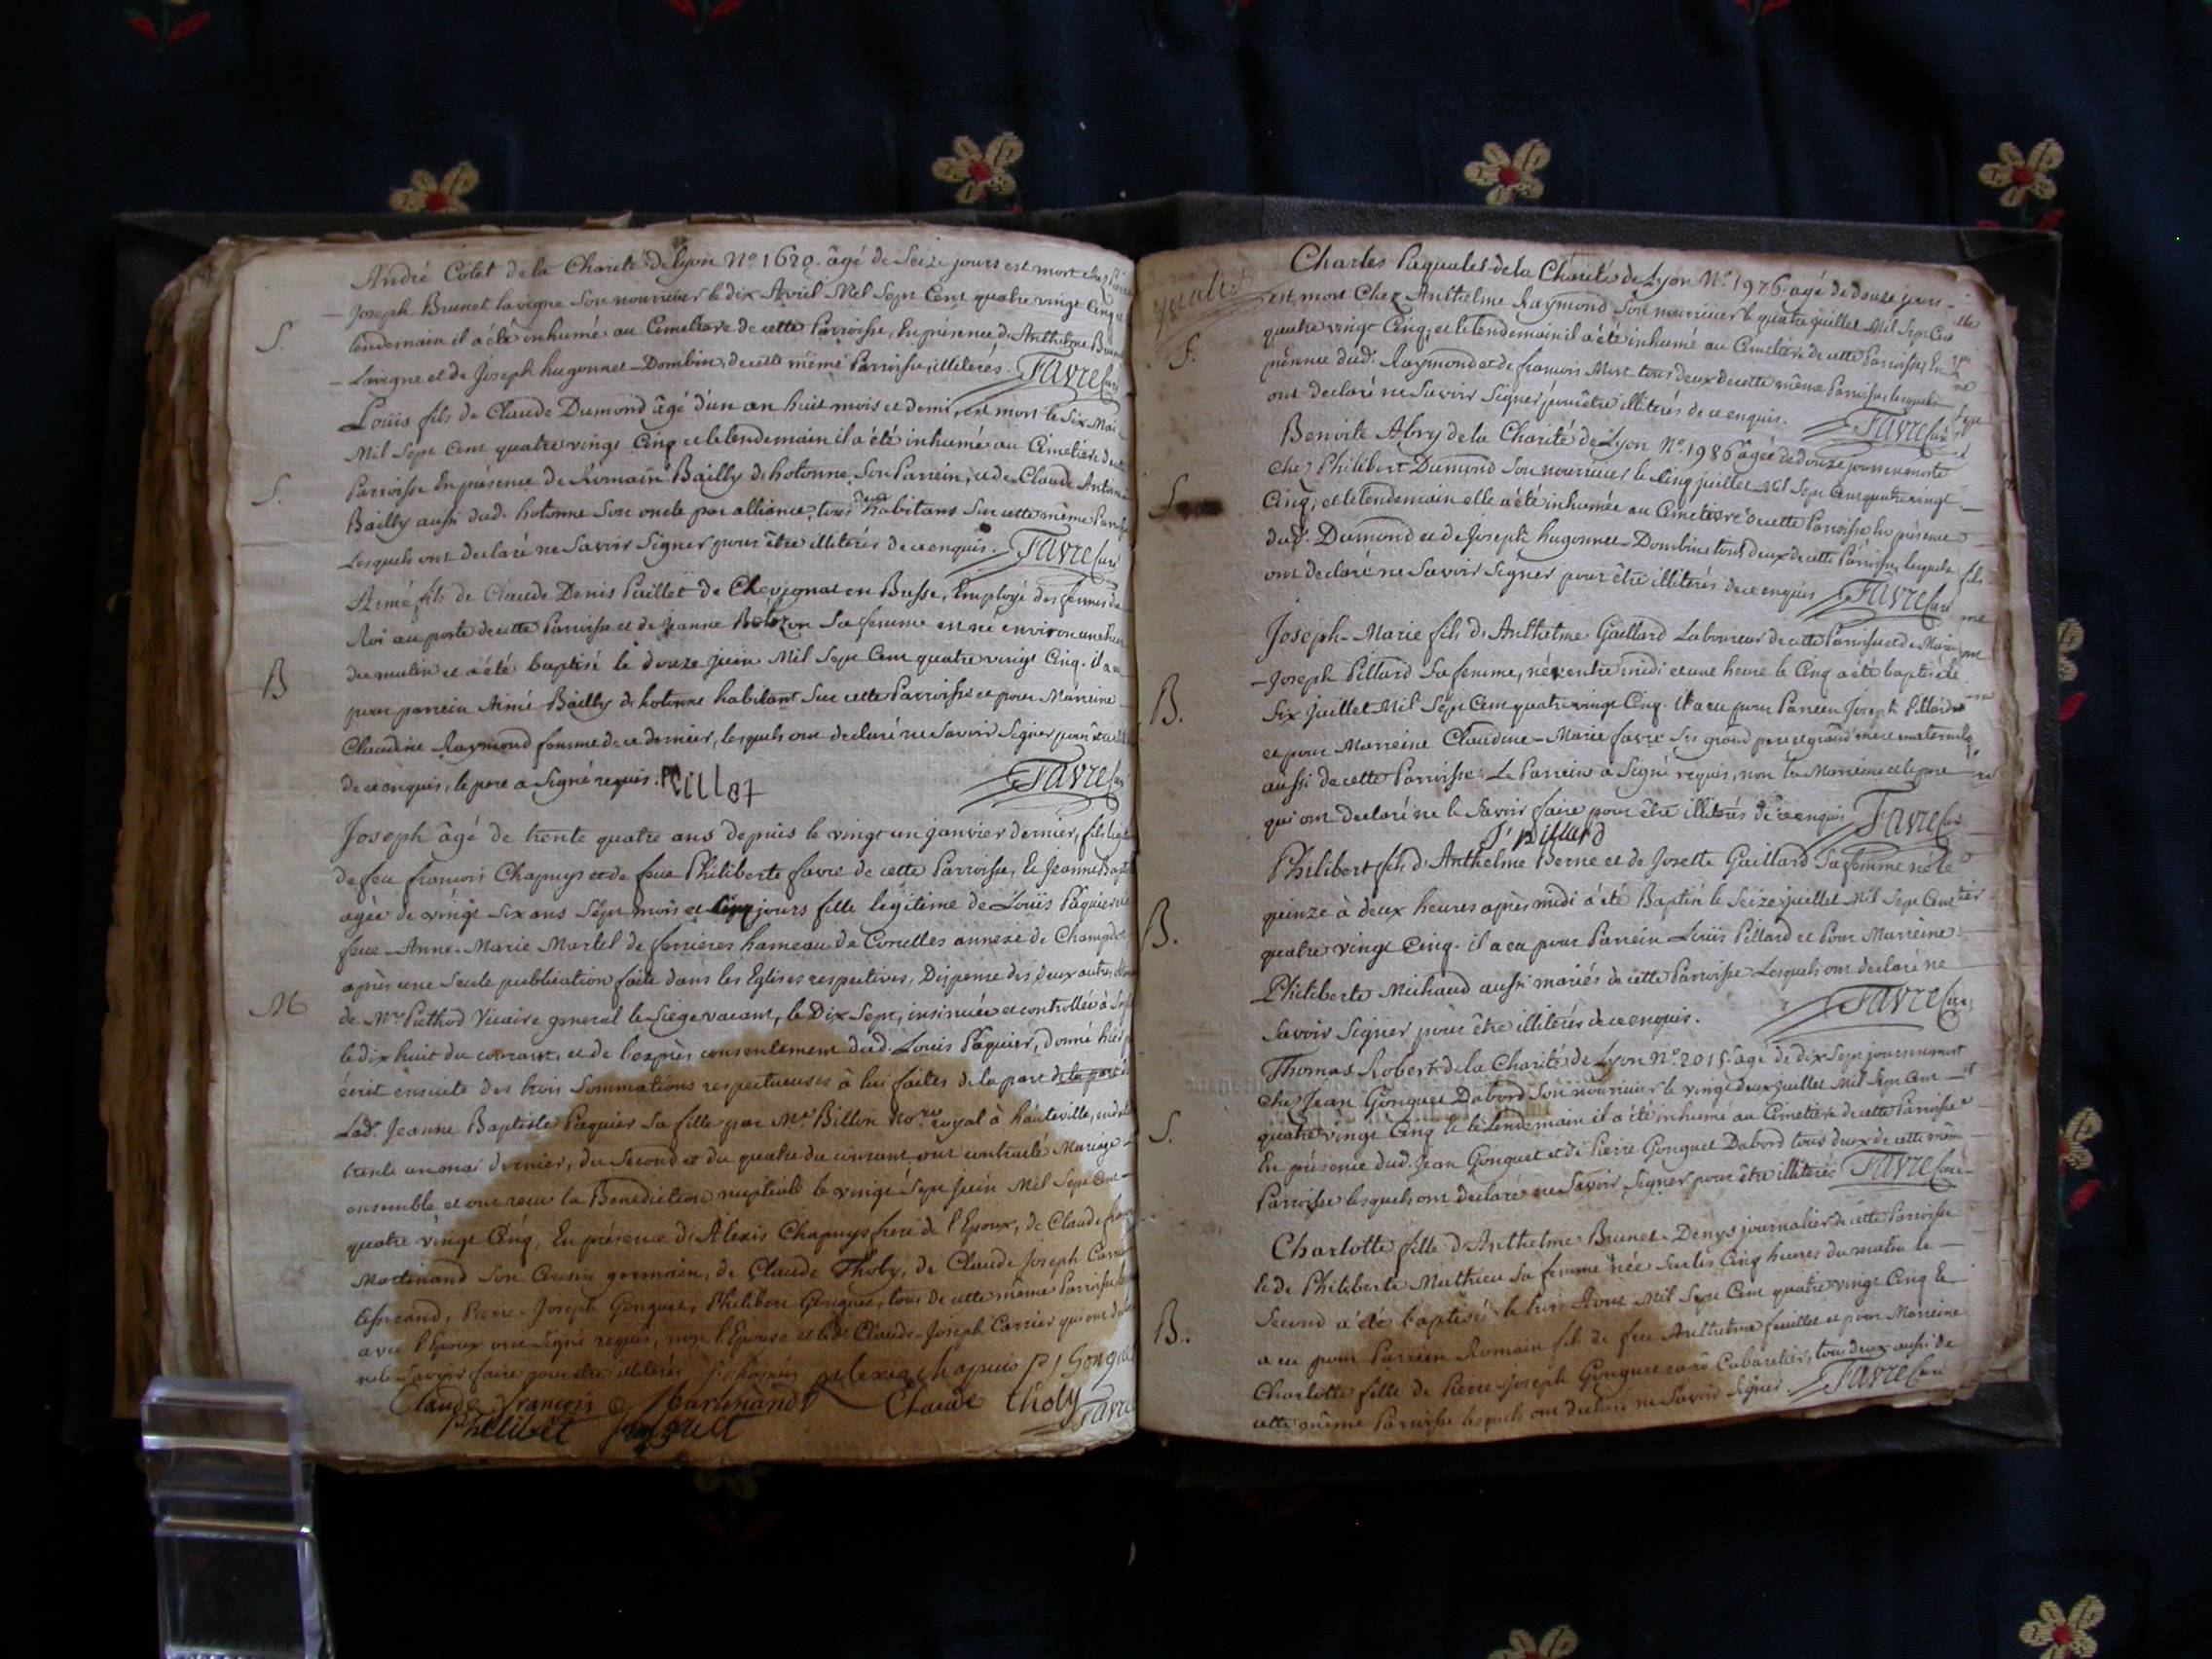 André Colet de la Charité de Lyon No. 1620. âgé de Seize jours est mort chez
Joseph Brunet lavigne Son nourricier le dix Avril Mil Sept Cent quatre vingt Cinq et
S.
lendemain il a été inhumé au Cimetiere de cette Parroisse, En présence d'Anthelme Brunet
Lavigne et de Joseph hugonnet-Dombin, de cette même Parroisse, illiterés. Favre Curé
Loüis fils de Claude Dumond âgé d'un an huit mois et demi, est mort le Six Mai
Mil Sept Cent quatre vingt Cinq et le lendemain il a été inhumé au Cimetiere de cette
Parroisse En présence de Romain Bailly de hotonne Son Parrein, et de Claude Antoine
S.
Bailly aussi dud. hotonne Son oncle par alliance, tous deux habitans Sur cette même Parroisse
Lesquels ont declaré ne Savoir Signer pour être illiterés de ce enquis. Favre Curé
Aimé fils de Claude Denis Puillet de Chevignat en Bresse, Employé des fermes du
Roi au poste de cette Parroisse et de Jeanne Sa femme est né environ une heure
du matin et a été baptisé le douze juin Mil Sept Cent quatre vingt Cinq. il a eu
B
pour parrein Aimé Bailly de hotonne habitant Sur cette Parroisse et pour Marreine
Claudine Raymond femme de ce dernier, lesquels ont declaré ne Savoir Signer pour être
de ce enquis, le pere a Signé requis. Favre Curé
Joseph âgé de trente quatre ans depuis le vingt un janvier dernier, fils
de feu francois Chapuys et de feue Philiberte favre de cette Parroisse, Et Jeanne Bapt
agée de vingt Six ans Sept mois et Cinq jours fille légitime de Loüis Paquier et de
feue Anne-Marie Martel de ferrieres hameau de Corcelles annexe de Champdor
après une Seule publication faite dans les Eglises respectives, Dispense des deux autres
M
de Mr Puthod Vicaire general le Siege vacant, le Dix Sept, insinuée et controllée à
le dix huit du courant, et de l'exprès consentement dud. Louis Paquier, donné hier
écrit ensuite des trois Sommations respectueuses à lui faites de la part de la part
Lad. Jeanne Baptiste Paquier Sa fille par Me Billon Nore royal à hauteville, en date
trente un mai dernier, du Second et du quatre du courant ont contracté Mariage
ensemble et ont reçu la Benediction nuptiale le vingt Sept Juin Mil Sept Cent
quatre vingt Cinq, En présence d'Alexis Chapuys frere de l'Epoux, de Claude francois
Martinand Son Cousin germain, de Claude Thoby, de Claude Joseph Carrier
tisserand, Pierre-Joseph Gonguet, Philibert Gonguet, tous de cette même Parroisse
avec l'Epoux ont Signé requis, non l'Epouse et led. Claude-Joseph Carrier qui ont
ne le Savoir faire pour être illiterés J. chapuis alexis chapuis P J Gonguet
Claude francois Martinand Claude thoby Favre
Philibet
Charles Paquales de la Charité de Lyon No. 1976. agé de douze jours
est mort Chez Anthelme Raymond Son nourricier le quatre juillet Mil Sept Cent
quatre vingt Cinq, et le lendemain il a été inhumé au Cimetiere de cette Parroisse, En
S.
présence dud. Raymond et de francois tous deux de cette même Parroisse lesquels
ont declaré ne Savoir Signer pour être illiterés de ce enquis. Favre Curé
Benoite Abry de la Charité de Lyon No. 1986 agée de douze jours est morte
chez Philibert Dumond Son nourricier le Cinq juillet Mil Sept Cent quatre vingt
S.
Cinq, et le lendemain elle a été inhumée au Cimetiere de cette Parroisse En présence
dud. Dumond et de Joseph hugonnet-Dombin tous deux de cette Parroisse, lesquels
ont declaré ne Savoir Signer pour être illiterés de ce enquis Favre Curé
Joseph-Marie fils d'Anthelme Gaillard Laboureur de cette Parroisse et de Marie
Joseph Pillard Sa femme, né entre midi et une heure le Cinq a été baptisé le
B.
Six juillet Mil Sept Cent quatre vingt Cinq. il a eu pour Parrein Joseph Pillard
et pour Marreine Claudine-Marie favre Ses grand pere et grand mere maternels
aussi de cette Parroisse. Le Parrein a Signé requis, non la Marreine et le pere
qui ont declaré ne le Savoir faire pour être illiterés de ce enquis Favre Curé
J. pillard
Philibert fils d'Anthelme Berne et de Josette Gaillard Sa femme né le
quinze à deux heures après midi a été Baptisé le Seize juillet Mil Sept Cent
B.
quatre vingt Cinq. il a eu pour Parrein Loüis Pillard et Pour Marreine
Philiberte Michaud aussi mariés de cette Parroisse. Lesquels ont declaré ne
Savoir Signer pour être illiterés de ce enquis. Favre Curé
Thomas Robert de la Charité de Lyon No. 2015. âgé de dix Sept jours est mort
chez Jean Gonguet Dabord Son nourricier le vingt deux juillet Mil Sept Cent
S.
quatre vingt Cinq et le lendemain il a été inhumé au Cimetiere de cette Parroisse
En présence dud. Jean Gonguet et de Pierre Gonguet Dabord tous deux de cette même
Parroisse lesquels ont declaré ne Savoir Signer pour être illiterés Favre Curé
Charlotte fille d'Anthelme Brunet-Denys journalier de cette Parroisse
et de Philiberte Mathieu Sa femme née Sur les Cinq heures du matin le
Second a été baptisée le trois Aout Mil Sept Cent quatre vingt Cinq Et
B.
a eu pour Parrein Romain fils de feu Anthelme feuillet et pour Marreine
Charlotte fille de Pierre-Joseph Gonguet Cabaretier, tous deux aussi de
cette même Parroisse lesquels ont declaré ne Savoir Signer. Favre Curé